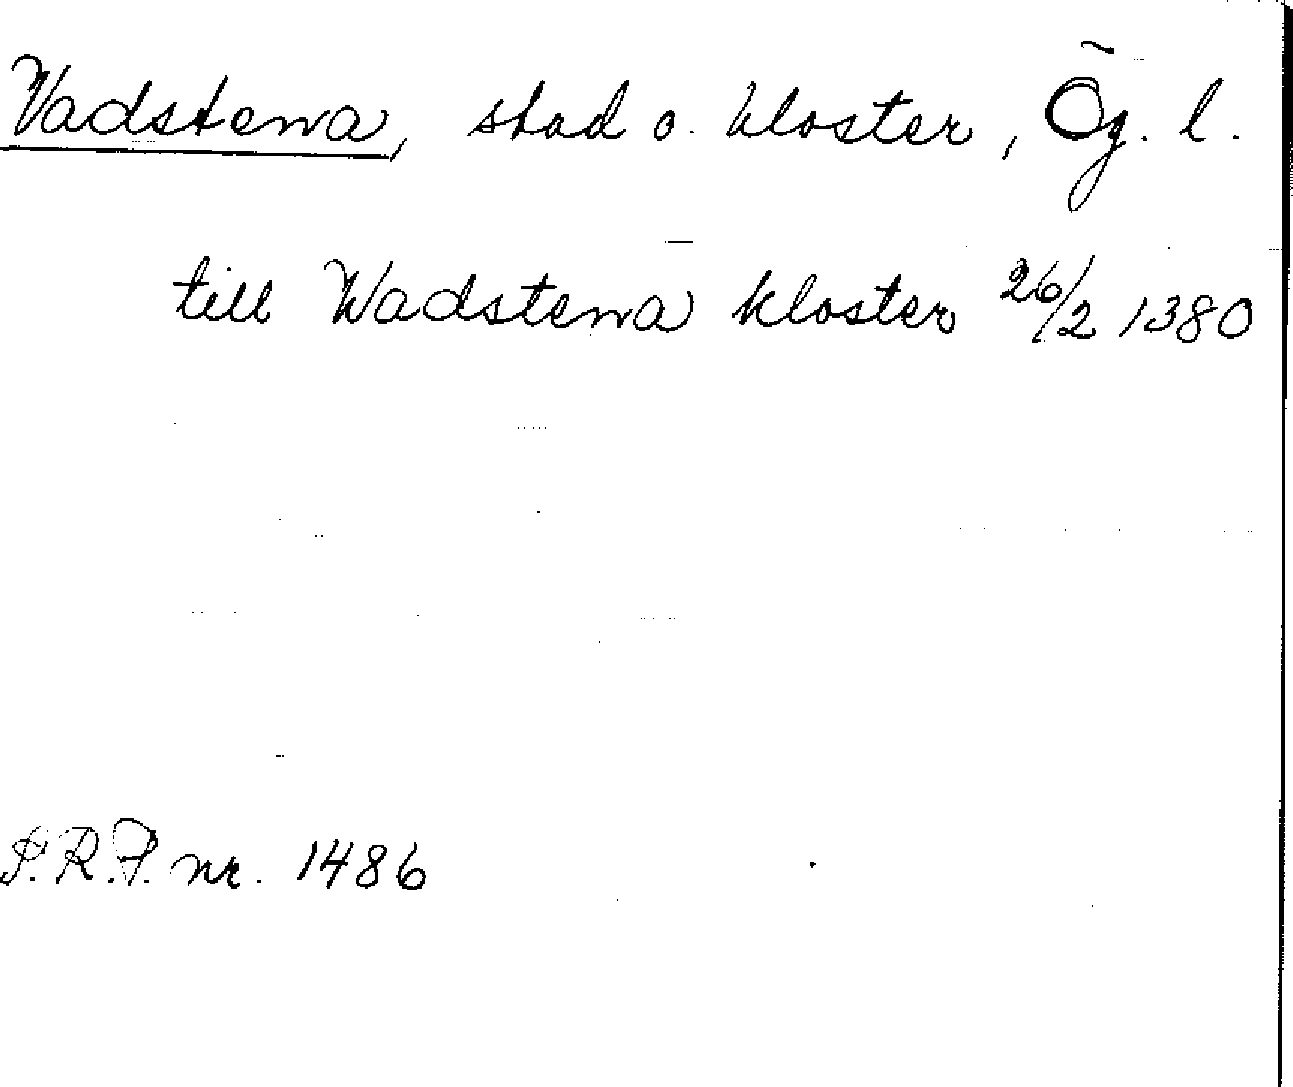 Vadstena, stad o. kloster, Ög. l.
till Wadstena kloster 26/2 1380
S.R.P. nr. 1486